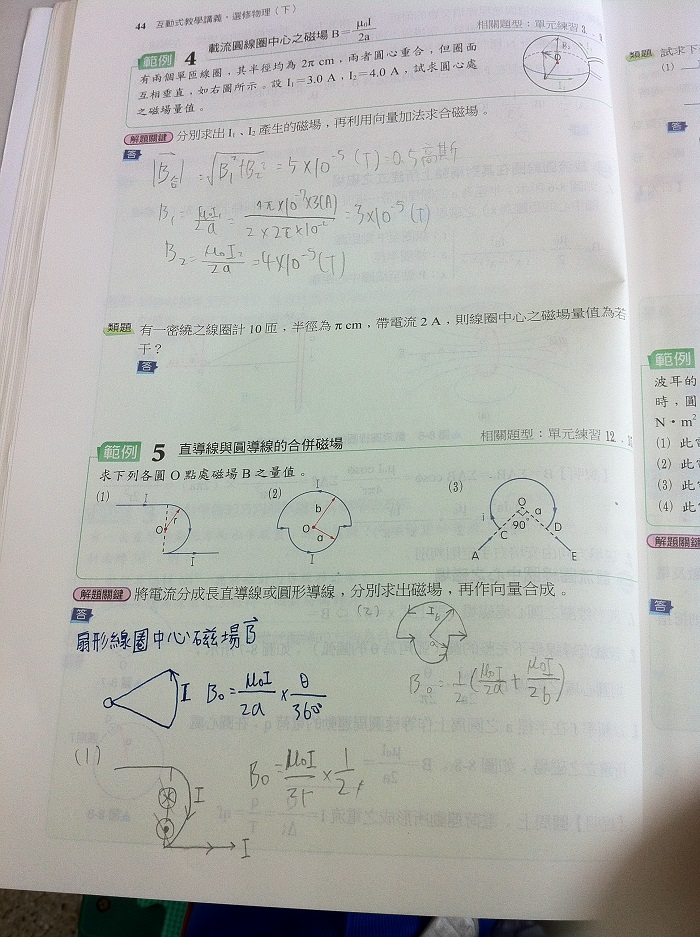 44 互動式教學講義．選修物理（下）
範例 4 載流圓線圈中心之磁場 B = μ₀I/2a
相關題型：單元練習 3
有兩個單匝線圈，其半徑均為 2π cm，兩者圓心重合，但圈面
互相垂直，如右圖所示。設 I₁=3.0 A，I₂=4.0 A，試求圓心處
之磁場量值。
解題關鍵 分別求出 I₁、I₂ 產生的磁場，再利用向量加法求合磁場。
答
|B合| = √(B₁²+B₂²) = 5×10⁻⁵ (T) = 0.5高斯
B₁ = μ₀I₁/2a = 4π×10⁻⁷×3(A)/2×2π×10⁻² = 3×10⁻⁵ (T)
B₂ = μ₀I₂/2a = 4×10⁻⁵ (T)
類題 有一密繞之線圈計 10 匝，半徑為 π cm，帶電流 2 A，則線圈中心之磁場量值為若
干？
答
範例 5 直導線與圓導線的合併磁場
相關題型：單元練習 12
求下列各圓 O 點處磁場 B 之量值。
(1) I O r I
(2) I b O a I
(3) O a i 90° C D A E
解題關鍵 將電流分成長直導線或圓形導線，分別求出磁場，再作向量合成。
答
扇形線圈中心磁場B
I B₀ = μ₀I/2a × θ/360°
(2) I b
B₀ = 1/2 (μ₀I/2a + μ₀I/2b)
(1) I I
B₀ = μ₀I/ × 1/2
類題 試求下
(1)
答
範例
波耳的
時，圓
N·m²
(1) 此
(2) 此
(3) 此
(4) 此
解題關鍵
答